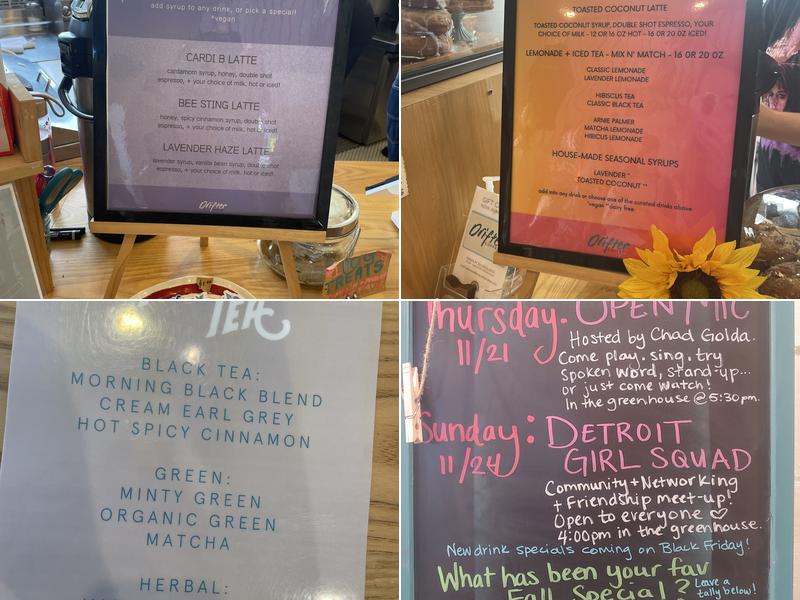 add syrup to any drink, or pick a special!
*vegan
CARDI B LATTE
cardamom syrup, honey, double shot
espresso, + your choice of milk. hot or iced!
BEE STING LATTE
honey, spicy cinnamon syrup, double shot
espresso, + your choice of milk. hot or iced!
LAVENDER HAZE LATTE
lavender syrup, vanilla bean syrup, double shot
espresso, + your choice of milk. hot or iced!
Drifter
DOG
TREATS
TOASTED COCONUT LATTE
TOASTED COCONUT SYRUP, DOUBLE SHOT ESPRESSO, YOUR
CHOICE OF MILK - 12 OR 16 OZ HOT - 16 OR 20 OZ ICED!
LEMONADE + ICED TEA - MIX N' MATCH - 16 OR 20 OZ
CLASSIC LEMONADE
LAVENDER LEMONADE
HIBISCUS TEA
CLASSIC BLACK TEA
ARNIE PALMER
MATCHA LEMONADE
HIBICUS LEMONADE
HOUSE-MADE SEASONAL SYRUPS
LAVENDER *
TOASTED COCONUT **
add into any drink or choose one of the curated drinks above
*vegan **dairy free
Drifter
GIFT
Drifter
TEAS
BLACK TEA:
MORNING BLACK BLEND
CREAM EARL GREY
HOT SPICY CINNAMON
GREEN:
MINTY GREEN
ORGANIC GREEN
MATCHA
HERBAL:
Thursday: OPEN MIC
11/21
Hosted by Chad Golda.
Come play. sing. try
spoken word, stand-up...
or just come watch!
In the greenhouse @ 5:30pm.
Sunday: DETROIT
11/24 GIRL SQUAD
Community + Networking
+ Friendship meet-up!
Open to everyone ♡
4:00pm in the greenhouse.
New drink specials coming on Black Friday!
What has been your fav
Fall Special?
Leave a
tally below!